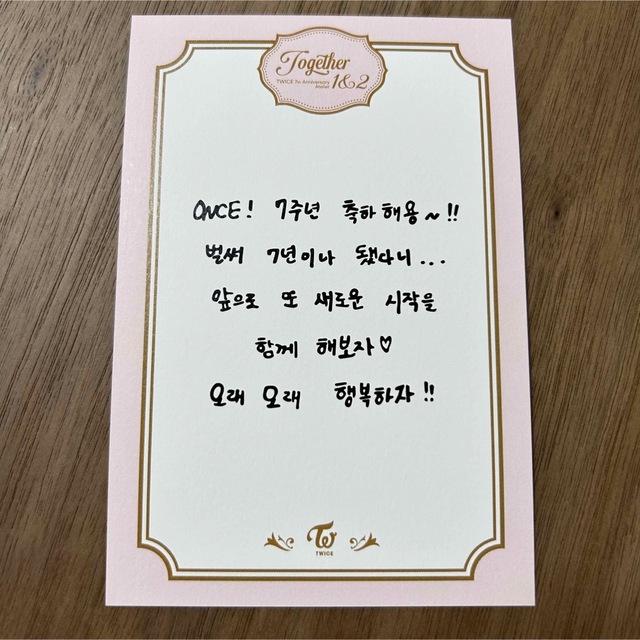 Together
TWICE 7th Anniversary
1&2
ONCE! 7주년 축하해용~!!
벌써 7년이나 됐다니...
앞으로 또 새로운 시작을
함께 해보자♡
오래 오래 행복하자!!
TWICE